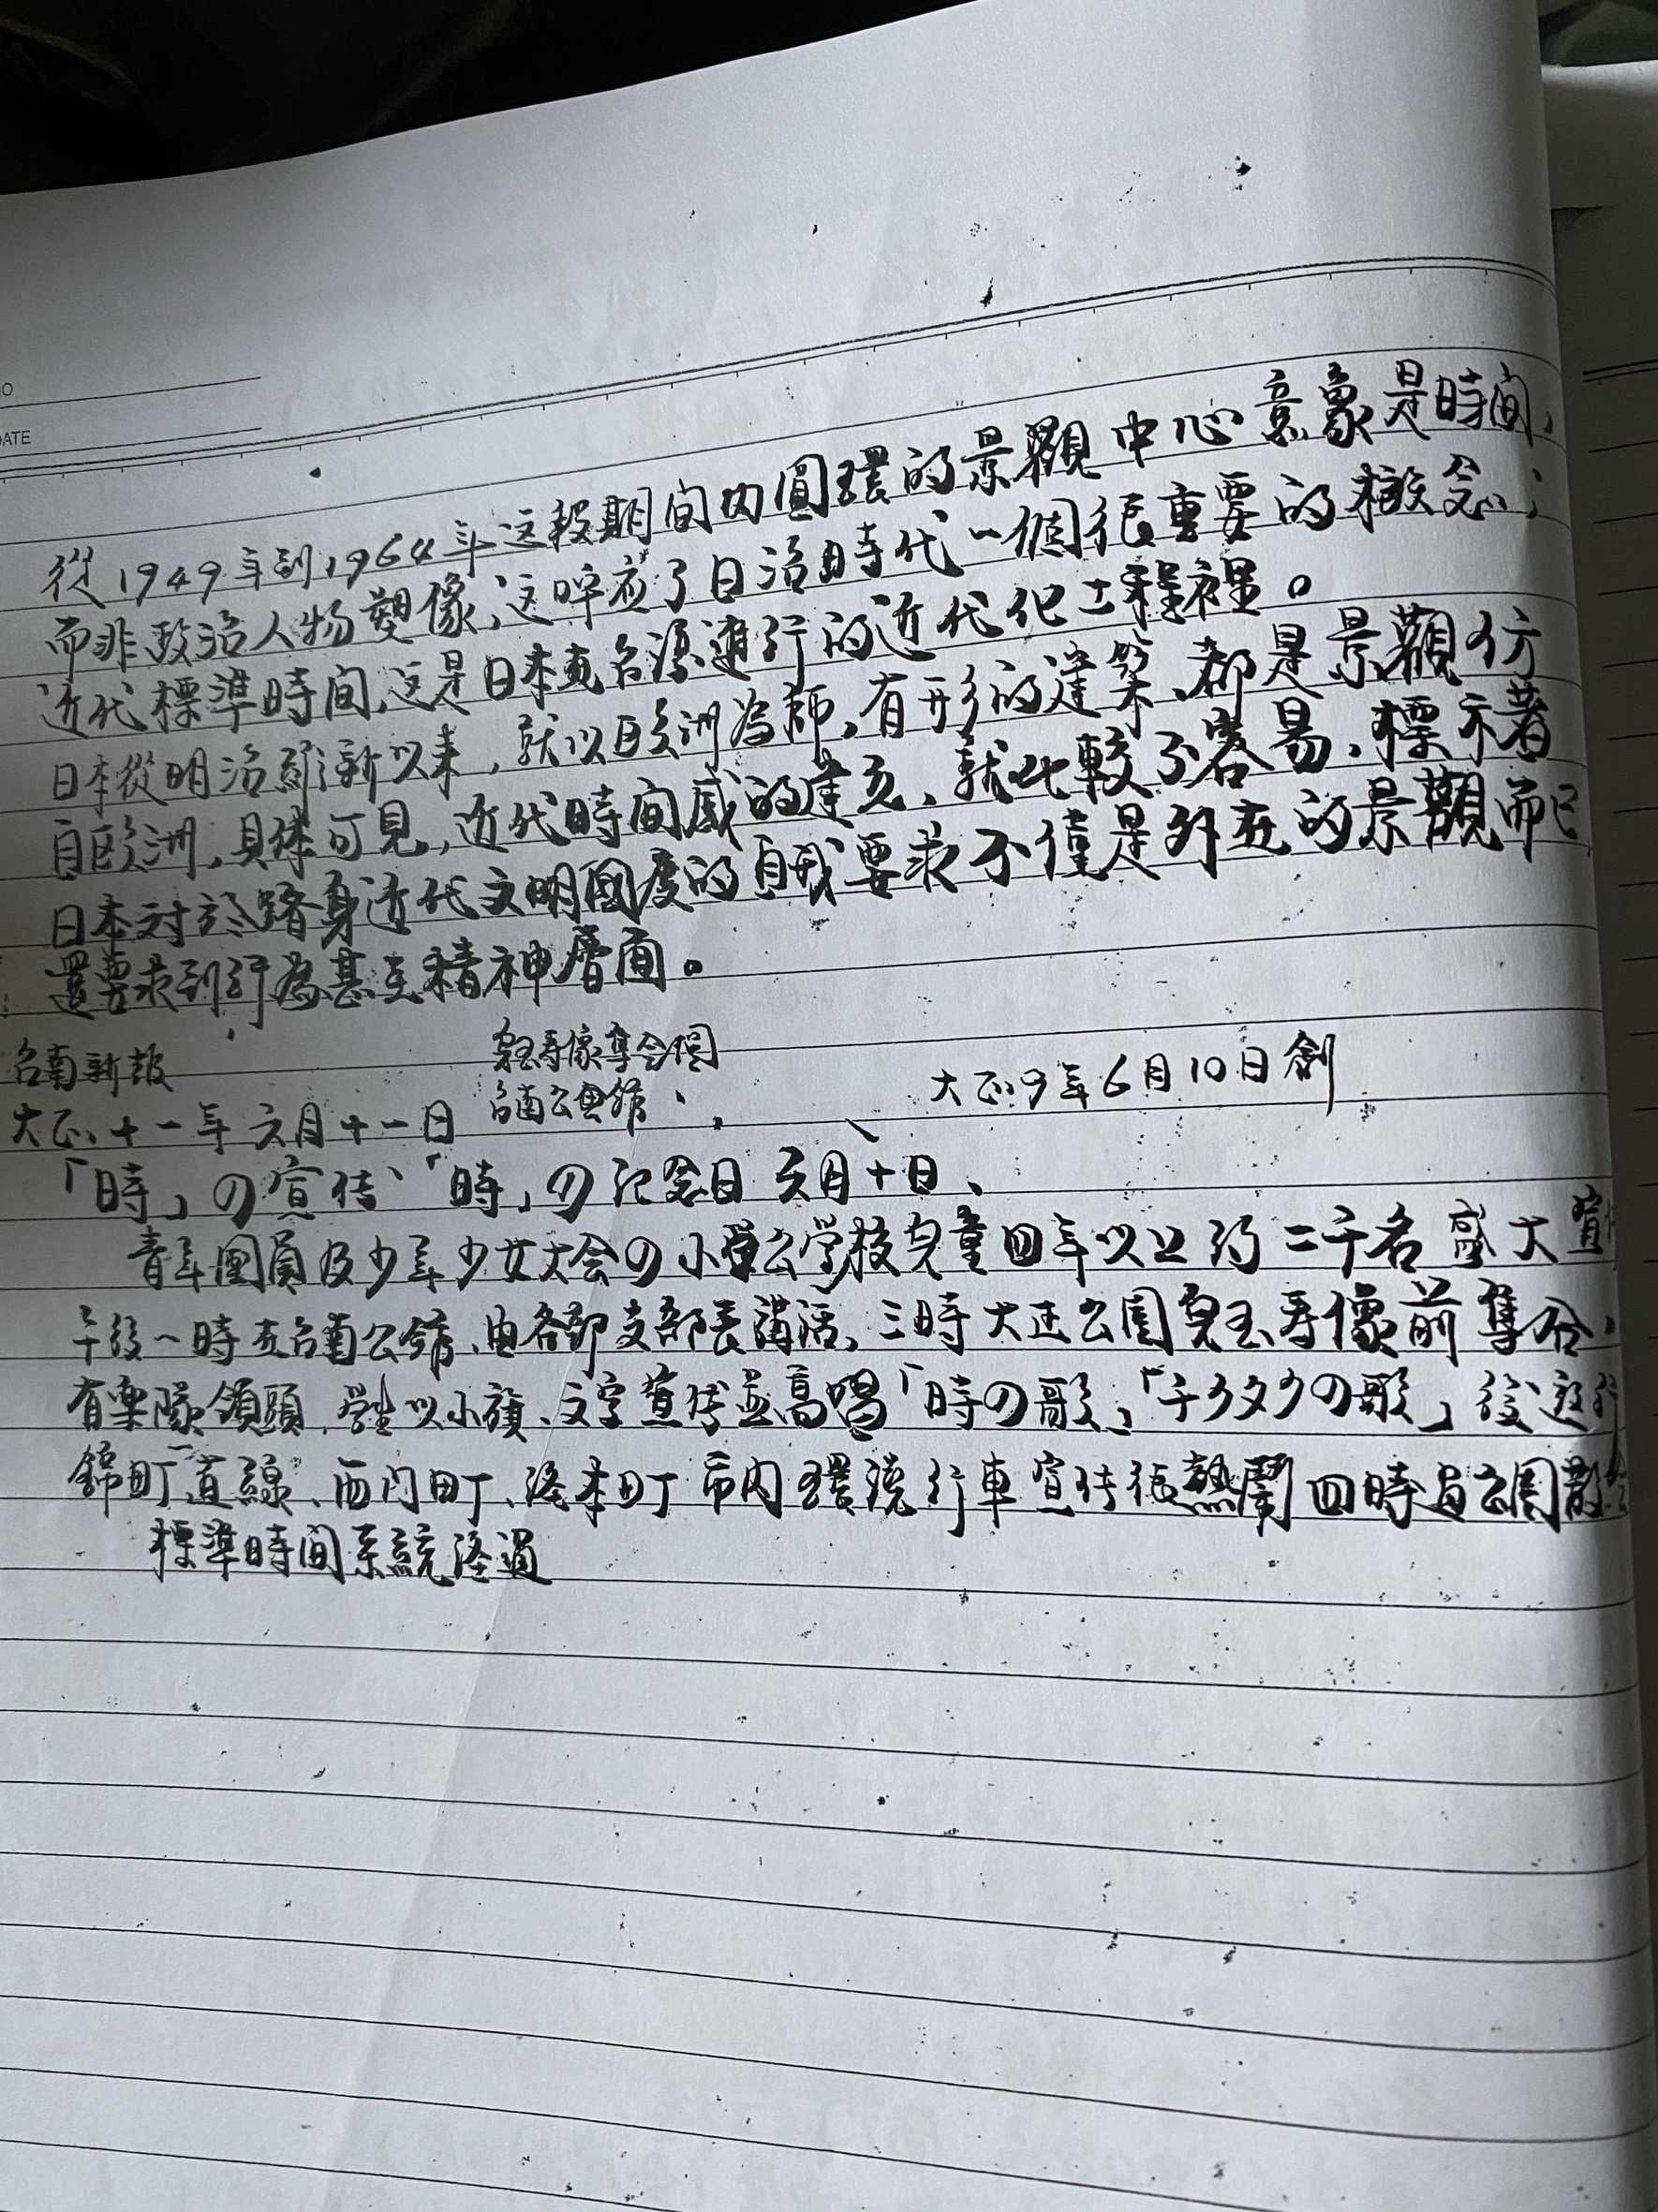 從1949年到1964年這段期間內圓環的景觀中心意象是時間,
而非政治人物塑像,這呼應了日治時代一個很重要的概念;
近代標準時間,這是日本在台灣進行的近代化工程裡。
日本從明治維新以來,就以歐洲為師,有形的建築、都是景觀仿
自歐洲,具体可見,近代時間感的建立、就比較不容易,標示著
日本对於躋身近代文明國度的自我要求不僅是外在的景觀而已
還要求到行為甚至精神層面。
台南新報
兒玉壽像集合
台南公會館、
大正十一年六月十一日
大正9年6月10日創
「時」の宣传、「時」の记念日 六月十日、
青年團員及少年少女大会の小學公学校兒童四年以上約二千名盛大宣
午後一時在台南公館、由各部支部長講活、三時大正公園兒玉壽像前集合,
有楽隊領頭、學生以小旗、文字宣传並高唱「時の歌」、「の歌」後遊行
錦町直線、西門町、経本町市内環繞行車宣传很熱鬧四時 公園散
標準時間系統経過